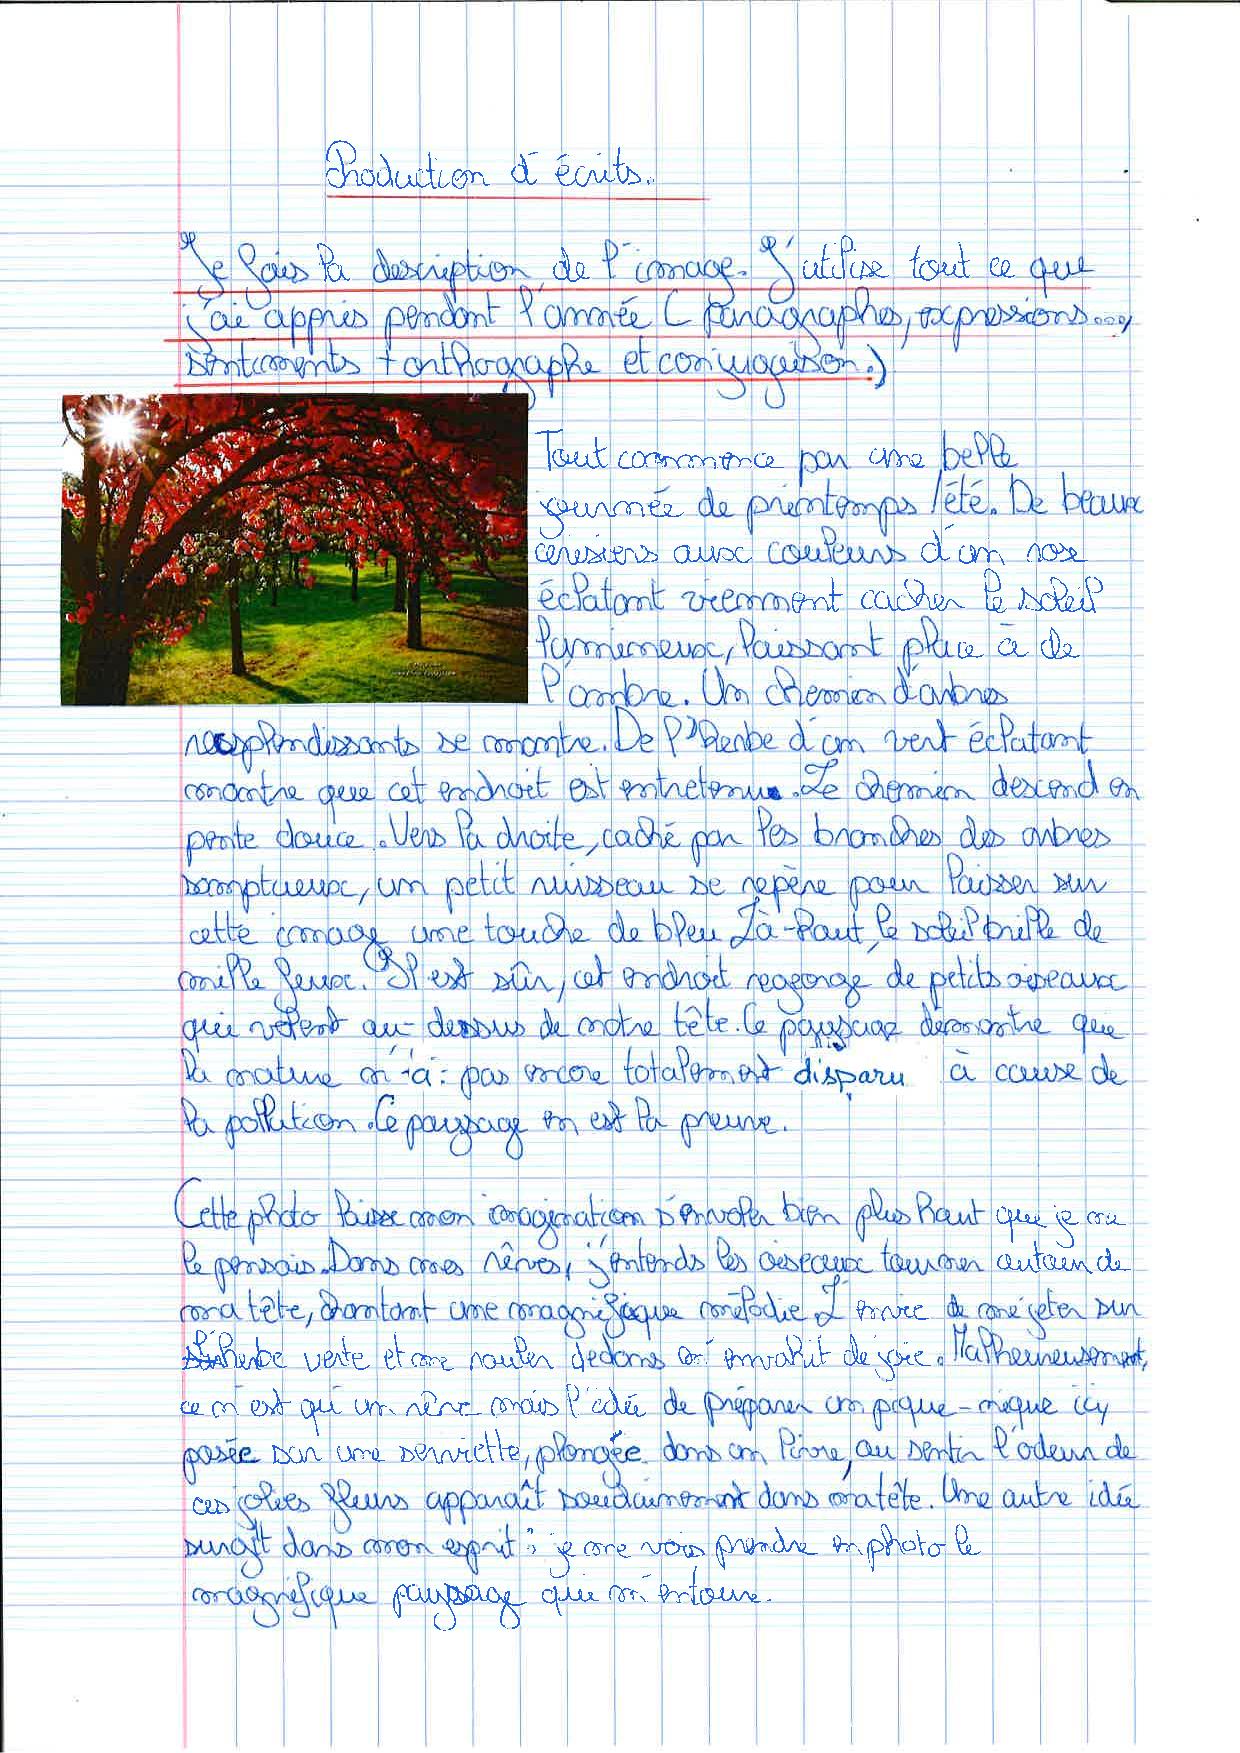 Production d'écrits.
Je fais la description de l'image. J'utilise tout ce que
j'ai appris pendant l'année ( paragraphes, expressions...,
sentiments + orthographe et conjugaison.)
Tout commence par une belle
journée de printemps /été. De beaux
cerisiers aux couleurs d'un rose
éclatant viennent cacher le soleil
lumineux, laissant place à de
l'ombre. Un chemin d'arbres
resplendissants se montre. De l'herbe d'un vert éclatant
montre que cet endroit est entretenu. Le chemin descend en
pente douce. Vers la droite, caché par les branches des arbres
somptueux, un petit ruisseau se repère pour laisser sur
cette image une touche de bleu Là-haut, le soleil brille de
mille feux. Il est sûr, cet endroit regorge de petits oiseaux
qui volent au-dessus de notre tête. Ce paysage démontre que
la nature n'a pas encore totalement disparu à cause de
la pollution. Ce paysage en est la preuve.
Cette photo laisse mon imagination s'envoler bien plus haut que je ne
le pensais. Dans mes rêves, j'entends les oiseaux tourner autour de
ma tête, chantant une magnifique mélodie. L'envie de me jeter sur
l'herbe verte et me rouler dedans m'envahit de joie. Malheureusement,
ce n'est qu'un rêve mais l'idée de préparer un pique-nique icy
posée sur une serviette, plongée dans un livre, ou sentir l'odeur de
ces jolies fleurs apparaît soudainement dans ma tête. Une autre idée
surgit dans mon esprit : je me vois prendre en photo le
magnifique paysage qui m'entoure.